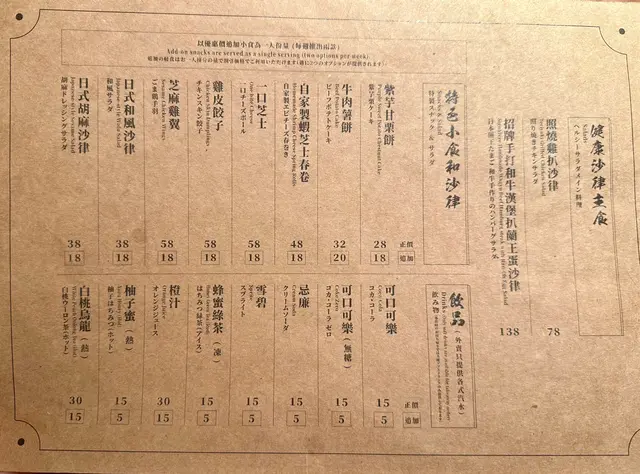 健康沙律主食
Salads
ヘルシーサラダメイン料理
照燒雞扒沙律
照り焼きチキンサラダ
78
招牌手打和牛漢堡扒蘭王蛋沙律
138
以優惠價追加小食為一人份量(每週推出兩款)
Add-on snacks are served as a single serving (two options per week)
特色小食和沙律
特製スナック&サラダ
正價
追加
紫芋甘栗餅
紫芋栗ケーキ
28
18
牛肉薯餅
ビーフポテトケーキ
32
20
自家製蝦芝士春卷
自家製エビチーズ春巻き
48
18
一口芝士
一口チーズボール
58
18
雞皮餃子
チキンスキン餃子
58
18
芝麻雞翼
ごま鶏手羽
58
18
日式和風沙律
和風サラダ
38
18
日式胡麻沙律
胡麻ドレッシングサラダ
38
18
飲品(外賣只提供各式汽水)
Drinks
飲み物
正價
追加
可口可樂
コカ・コーラ
15
5
可口可樂(無糖)
コカ・コーラ ゼロ
15
5
忌廉
クリームソーダ
15
5
雪碧
スプライト
15
5
蜂蜜綠茶(凍)
はちみつ緑茶(アイス)
15
5
橙汁
オレンジジュース
30
15
柚子蜜(熱)
柚子はちみつ(ホット)
15
5
白桃烏龍(熱)
白桃ウーロン茶(ホット)
30
15